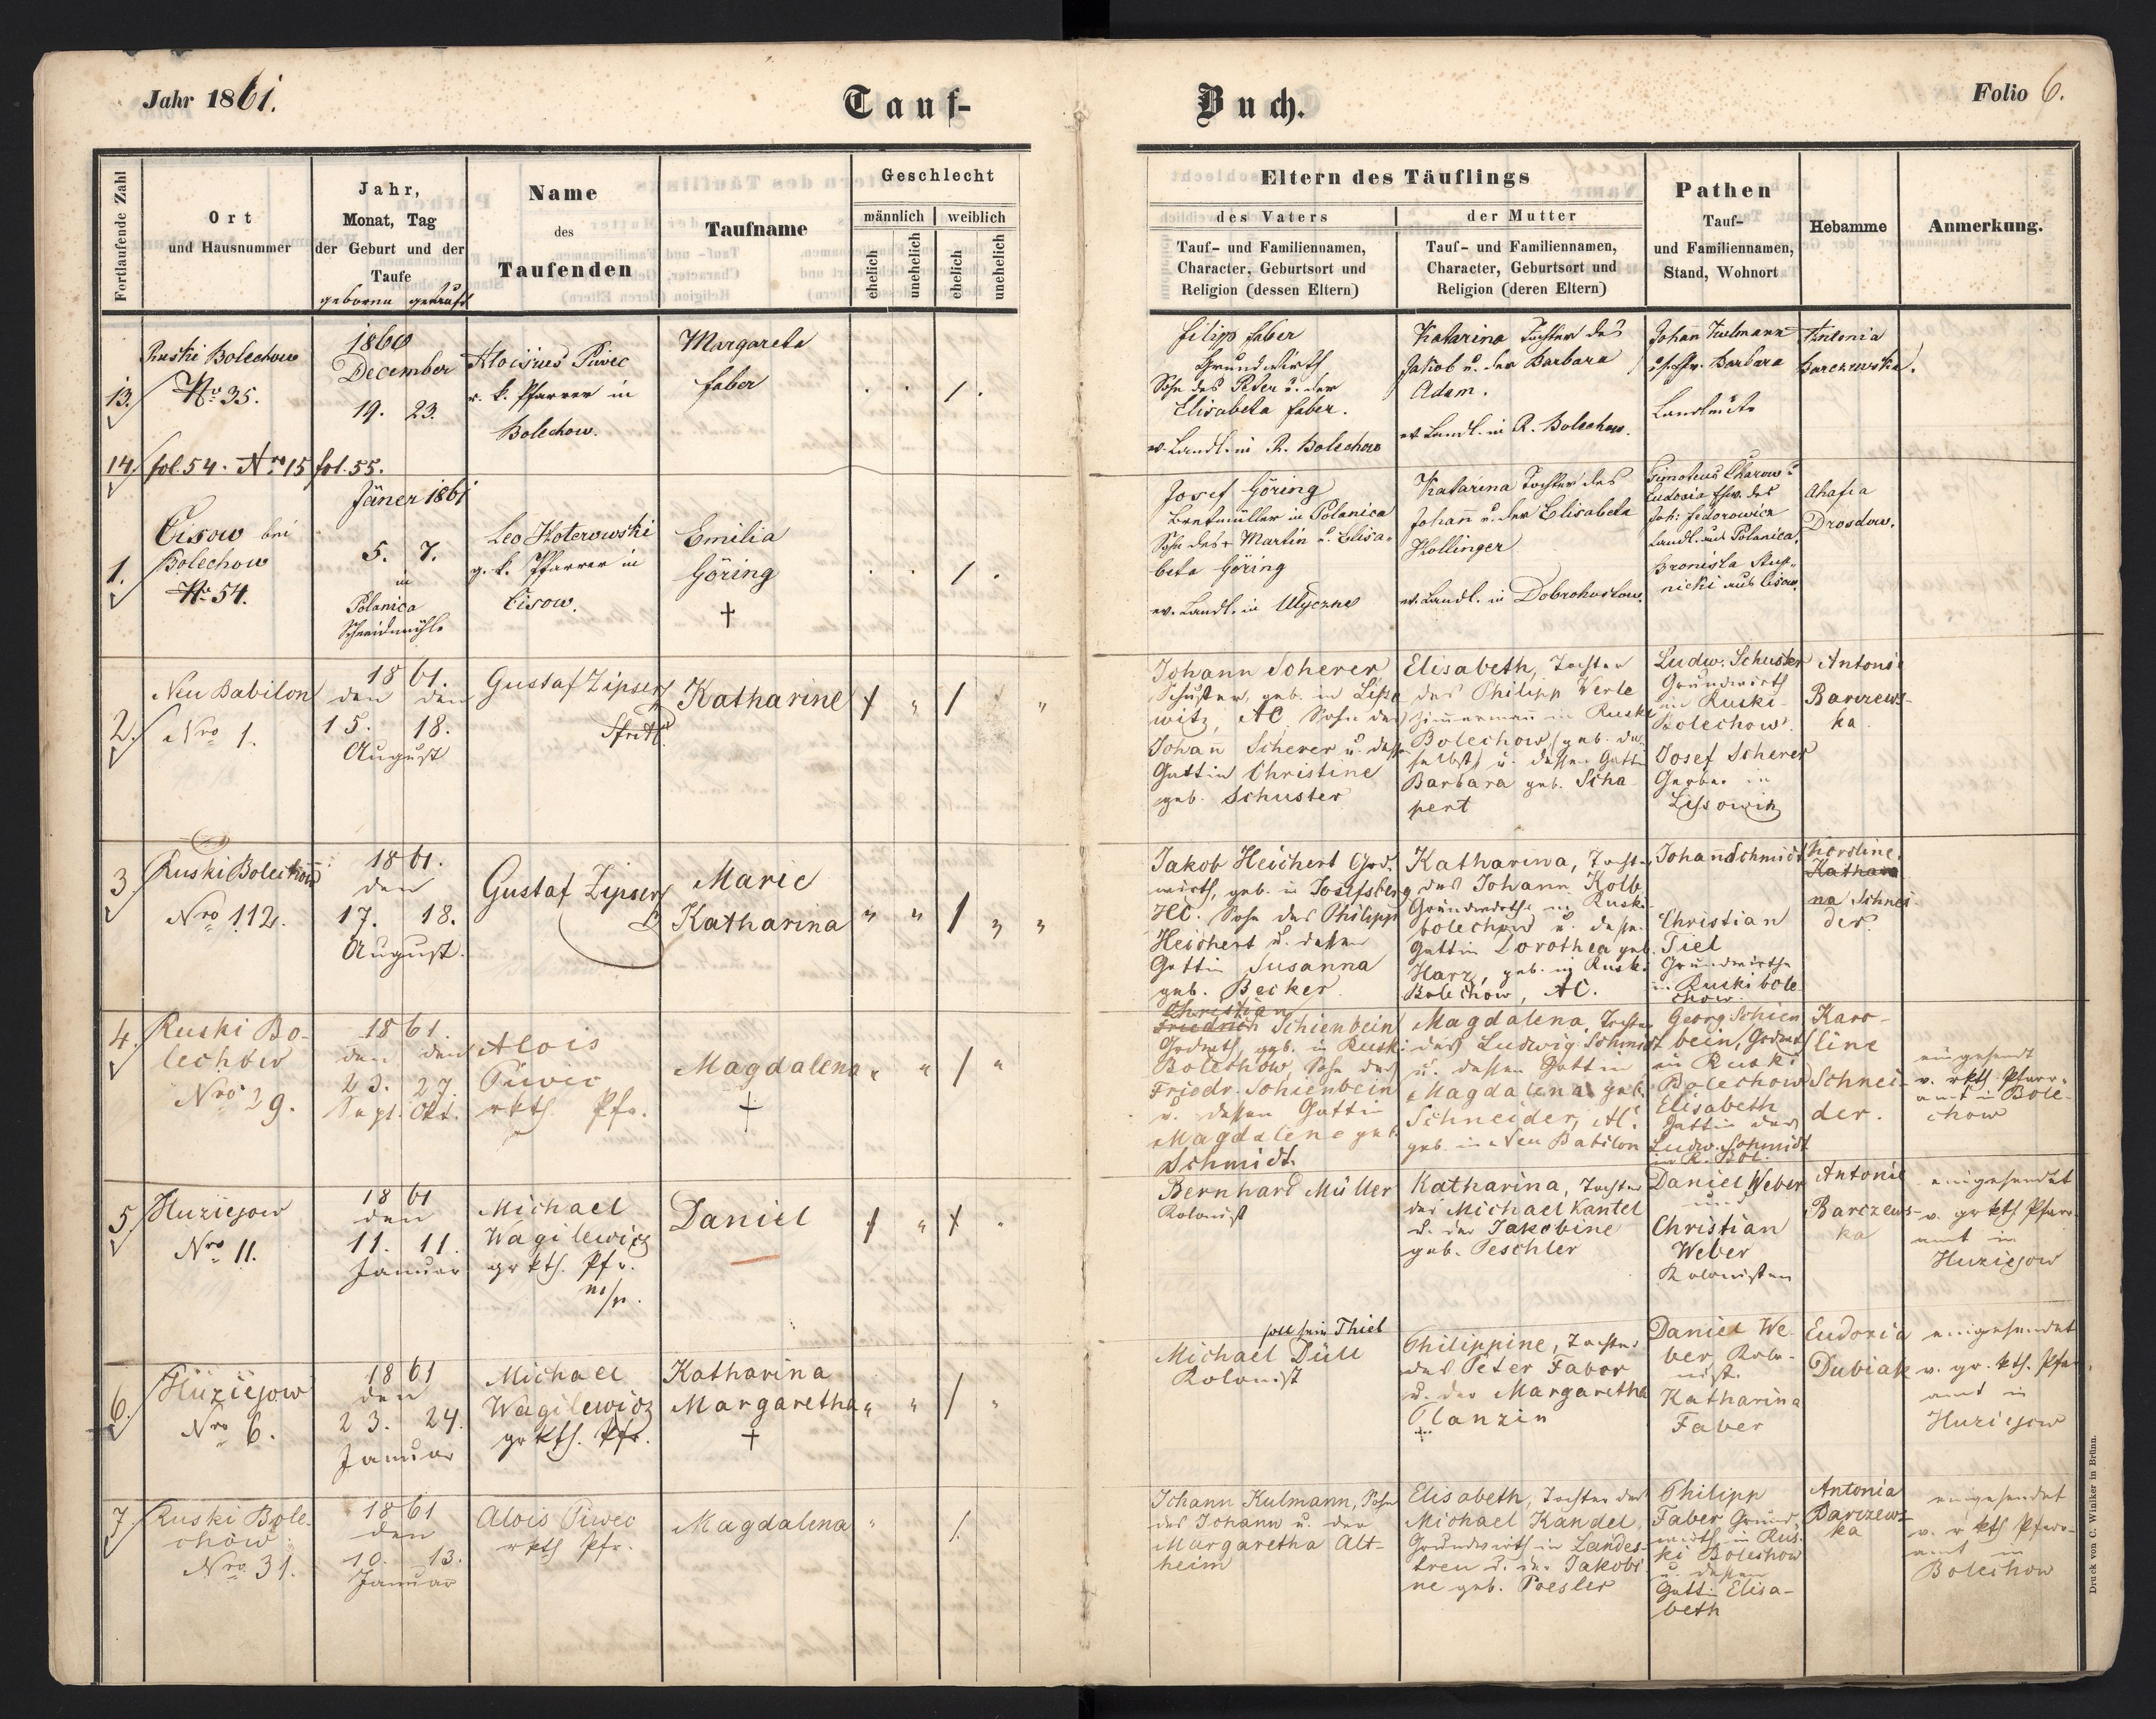 Jahr 1861.
Tauf-
Buch.
Folio 6.
Fortlaufende Zahl
Ort
und Hausnummer
Jahr,
Monat, Tag
der Geburt und der
Taufe
geboren getauft
Name
des
Taufenden
Taufname
Geschlecht
männlich
weiblich
ehelich
unehelich
ehelich
unehelich
Eltern des Täuflings
des Vaters
Tauf- und Familiennamen,
Character, Geburtsort und
Religion (dessen Eltern)
der Mutter
Tauf- und Familiennamen,
Character, Geburtsort und
Religion (deren Eltern)
Pathen
Tauf-
und Familiennamen,
Stand, Wohnort
Hebamme
Anmerkung.
13.
Ruski Bolechow
No 35.
1860
December
19. 23.
Aloisius Piwec
r. k. Pfarrer in
Bolechow.
Margareta
Faber
Filipp Faber
Grundwirth
Sohn des Peter u. der
Elisabeta Faber.
ev. Landl. in R. Bolechow
Katarina Tochter des
Jakob u. der Barbara
Adam.
ev. Landl. in R. Bolechow.
Johann Kulmann
Barbara
Landleute
Antonia
Barczewska.
14. fol. 54. Nro 15 fol. 55.
1.
Cisow bei
Bolechow
No 54.
Jäner 1861
5. 7.
in
Polanica
Schneidmühle
Leo Koterowski
g. k. Pfarrer in
Cisow.
Emilia
Göring
†
Josef Göring
Brettmüller in Polanica
Sohn des Martin u. Elisa-
beta Göring
ev. Landl. in Ulyczne
Katarina Tochter des
Johann u. der Elisabeta
Kollinger
ev. Landl. in Dobrohostow.
Timoteus
Eudoxia Ehw. des
Joh: Fedorowicz
Landl. aus Polanica.
Bronisla Stup-
nicki aus Cisow.
Ahafia
Drosdow.
2.
Neu Babilon
Nro 1.
1861.
den den
15. 18.
August
Gustaf Zipser
Katharine
Johann Scherer
Schuster, geb. in Lisso
witz, AC. Sohn des
Johan Scherer u. dessen
Gattin Christine
geb. Schuster
Elisabeth, Tochter
des Philipp Werle
Zimmermann in Ruski
Bolechow (geb. da-
selbst) u. dessen Gattin
Barbara geb. Scha
pert
Ludw. Schuster
Grundwirth
in Ruski
Bolechow.
Josef Scherer
Gerber in
Lissowitz
Antonie
Barczews-
ka
3
Ruski Bolechow
Nro 112.
1861.
den
17. 18.
August.
Gustaf Zipser
Marie
Katharina
Jakob Heichert Grd.
wirth, geb. in Josefsberg
HC. Sohn des Philipp
Heichert u. dessen
Gattin Susanna
geb. Becker
Katharina, Tochter
des Johann Kolb
Grundwirths in Ruski
bolechow u. dessen
Gattin Dorothea geb.
Harz, geb. in Ruski
Bolechow, AC.
Johann Schmidt
Christian
Tiel
Grundwirthe
in Ruski bole
chow.
Karoline
Kathari
na Schnei
der.
4.
Ruski Bo-
lechow
Nro 29.
1861.
den den
23. 27.
Sept. Okt.
Alois
Piwec
rkth Pfr.
Magdalena
†
Christian
Friedrich Schienbein
Grdwrth, geb. in Ruski
Bolechow, Sohn des
Friedr. Schienbein
u. dessen Gattin
Magdalene geb.
Schmidt.
Magdalena, Tochter
des Ludwig Schmidt
u. dessen Gattin
Magdalena geb.
Schneider, AC.
geb. in Neu Babilon
Georg Schien
bein, Grdwrth
in Ruski
Bolechow
Elisabeth
Gattin des
Ludw. Schmidt
in R. Bol.
Karo-
line
Schnei-
der.
eingesendt
v. rkth. Pfarr-
amt in Bole-
chow
5
Huziejow
Nro 11.
1861
den
11. 11.
Januar
Michael
Wagilewicz
gr kth. Pfr.
m/p.
Daniel
Bernhard Müller
Kolonist
Katharina, Tochter
des Michael Kantel
u. der Jakobine
geb. Peschler
Daniel Weber
und
Christian
Weber
Kolonisten
Antonie
Barczews-
ka
eingesendet
v. gr kth Pfarr-
amt in
Huziejow
6.
Huziejow
Nro 6.
1861
den
23. 24.
Januar
Michael
Wagilewicz
gr kth. Pfr.
Katharina
Margaretha
†
soll sein Thiel
Michael Düll
Kolonist
Philippine, Tochter
des Peter Faber
u. der Margaretha
Planzin
Daniel We
ber Kolo-
nist.
Katharina
Faber
Eudoxia
Dubiak
eingesendet
v. gr. kth. Pfarr-
amt in
Huziejow
7.
Ruski Bole-
chow
Nro 31.
1861
den
10. 13.
Januar
Alois Piwec
rkth Pfr.
Magdalena
Johann Kulmann, Sohn
des Johann u. der
Margaretha Alt-
heim
Elisabeth, Tochter des
Michael Kandel,
Grundwirth in Landes-
treu u. der Jakobi
ne geb. Poesler
Philipp
Faber Grund-
wirth in Rus-
ki Bolechow
u. dessen
Gattin Elisa-
beth
Antonia
Barczews-
ka
eingesendet
v. r kth Pfarr-
amt in
Bolechow
Druck von C. Winiker in Brünn.